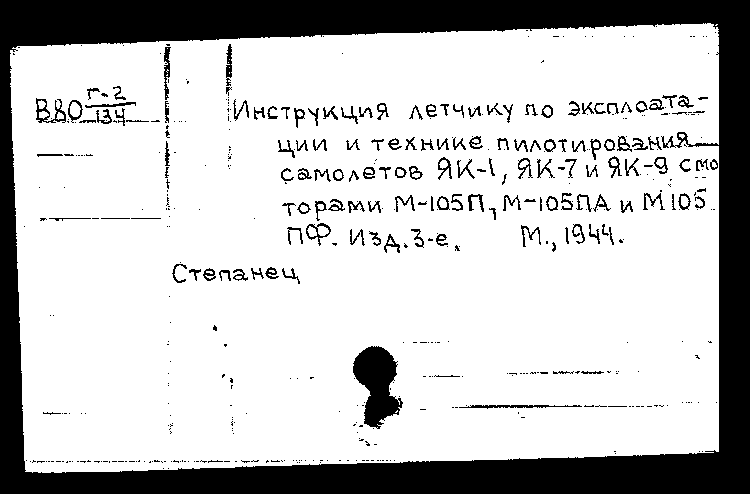 В80 г-2/134
Инструкция летчику по эксплоата-
ции и технике пилотирования
самолетов ЯК-1, ЯК-7 и ЯК-9 с мо
торами М-105П, М-105ПА и М105
ПФ. Изд. 3-е. М., 1944.
Степанец